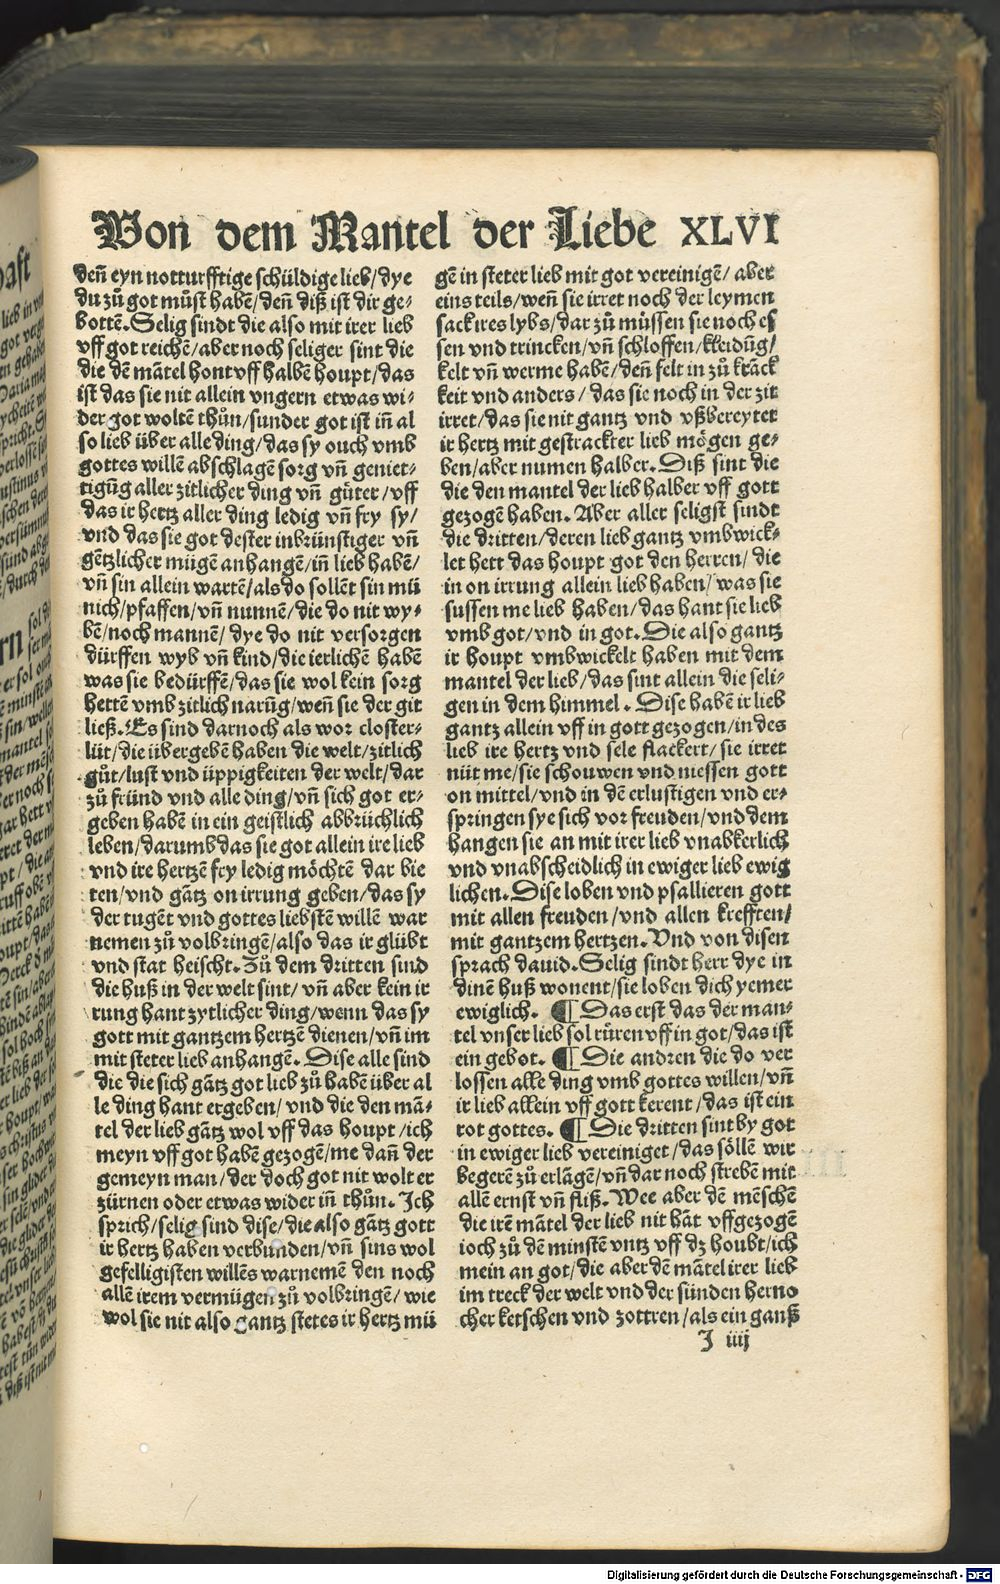 Von dem Mantel der Liebe XLVI
deñ eyn notturfftige schüldige lieb/dye
du zů got můst habē/deñ diß ist dir ge-
bottē. Selig sindt die also mit irer lieb
vff got reichē/aber noch seliger sint die
die dē mātel hont vff halbē houpt/das
ist das sie nit allein vngern etwas wi-
der got woltē thůn/sunder got ist iñ al
so lieb über alle ding/das sy ouch vmb
gottes willē abschlagē sorg vñ geniet-
tigūg aller zitlicher ding vñ gůter/vff
das ir hertz aller ding ledig vñ fry sy/
vnd das sie got dester inbrünstiger vñ
gētzlicher mügē anhangē/iñ lieb habē/
vñ sin allein wartē/als do sollēt sin mü
nich/pfaffen/vñ nunnē/die do nit wy-
bē/noch mannē/dye do nit versorgen
dürffen wyb vñ kind/die ierlichē habē
was sie bedürffē/das sie wol kein sorg
hettē vmb zitlich narūg/weñ sie der git
ließ. Es sind darnoch als wor closter-
lüt/die übergebē haben die welt/zitlich
gůt/lust vnd üppigkeiten der welt/dar
zů fründ vnd alle ding/vñ sich got er-
geben habē in ein geistlich abbrüchlich
leben/darumb das sie got allein ire lieb
vnd ire hertzē fry ledig möchtē dar bie
ten/vnd gātz on irrung geben/das sy
der tugēt vnd gottes liebstē willē war
nemen zů volbringē/also das ir glübt
vnd stat heischt. Zů dem dritten sind
die huß in der welt sint/vñ aber kein ir
rung hant zytlicher ding/wenn das sy
gott mit gantzem hertzē dienen/vñ im
mit steter lieb anhangē. Dise alle sind
die die sich gātz got lieb zů habē über al
le ding hant ergeben/vnd die den mā-
tel der lieb gātz wol vff das houpt/ich
meyn vff got habē gezogē/me dañ der
gemeyn man/der doch got nit wolt er
zürnen oder etwas wider iñ thůn. Ich
sprich/selig sind dise/die also gātz gott
ir hertz haben verbunden/vñ sins wol
gefelligisten willēs warnemē den noch
allē irem vermügen zů volbringē/wie
wol sie nit also gantz stetes ir hertz mü
gē in steter lieb mit got vereinigē/aber
eins teils/weñ sie irret noch der leymen
sack ires lybs/dar zů müssen sie noch es
sen vnd trincken/vñ schloffen/kleidūg/
kelt vñ werme habē/deñ felt in zů krāck
keit vnd anders/das sie noch in der zit
irret/das sie nit gantz vnd vßbereyter
ir hertz mit gestrackter lieb mögen ge-
ben/aber numen halber. Diß sint die
die den mantel der lieb halber vff gott
gezogē haben. Aber aller seligst sindt
die dritten/deren lieb gantz vmbwick-
let hett das houpt got den herren/die
in on irrung allein lieb haben/was sie
sussen me lieb haben/das hant sie lieb
vmb got/vnd in got. Die also gantz
ir houpt vmbwickelt haben mit dem
mantel der lieb/das sint allein die seli-
gen in dem himmel. Dise habē ir lieb
gantz allein vff in gott gezogen/in des
lieb ire hertz vnd sele flackert/sie irret
nüt me/sie schouwen vnd niessen gott
on mittel/vnd in dē erlustigen vnd er-
springen sye sich vor freuden/vnd dem
hangen sie an mit irer lieb vnabkerlich
vnd vnabscheidlich in ewiger lieb ewig
lichen. Dise loben vnd psallieren gott
mit allen freuden/vnd allen krefften/
mit gantzem hertzen. Vnd von disen
sprach dauid. Selig sindt herr dye in
dinē huß wonent/sie loben dich yemer
ewiglich. ¶ Das erst das der man-
tel vnser lieb sol rüren vff in got/das ist
ein gebot. ¶ Die andren die do ver
lossen alle ding vmb gottes willen/vñ
ir lieb allein vff gott kerent/das ist ein
rot gottes. ¶ Die dritten sint by got
in ewiger lieb vereiniget/das söllē wir
begerē zů erlāgē/vñ dar noch strebē mit
allē ernst vñ fliß. Wee aber dē mēschē
die irē mātel der lieb nit hāt vffgezogē
ioch zů dē minstē vntz vff dz houbt/ich
mein an got/die aber dē mātel irer lieb
im treck der welt vnd der sünden herno
cher ketschen vnd zottren/als ein ganß
J iiij
Digitalisierung gefördert durch die Deutsche Forschungsgemeinschaft - DFG